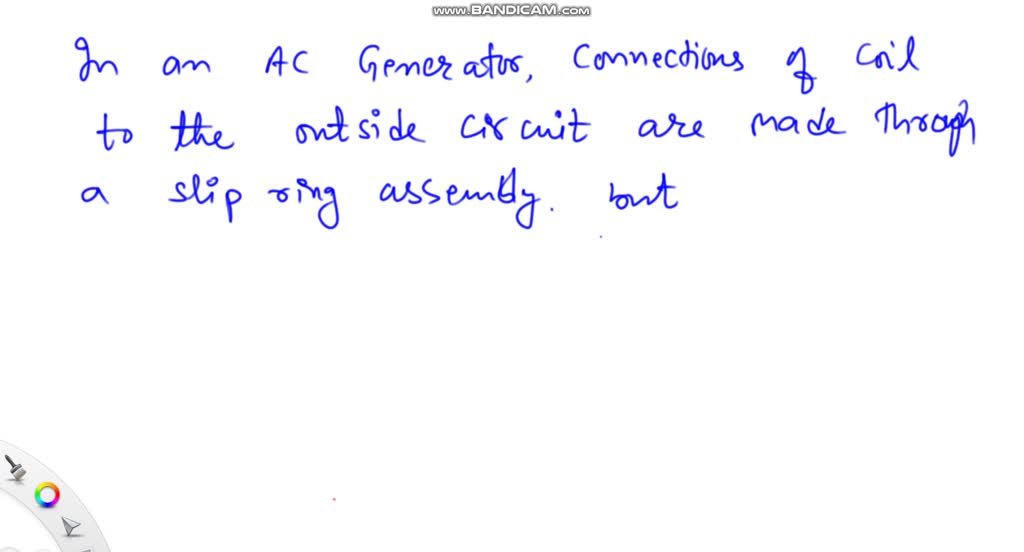 www.BANDICAM.com
In an AC Generator, Connections of Coil
to the outside circuit are made through
a slip ring assembly. but